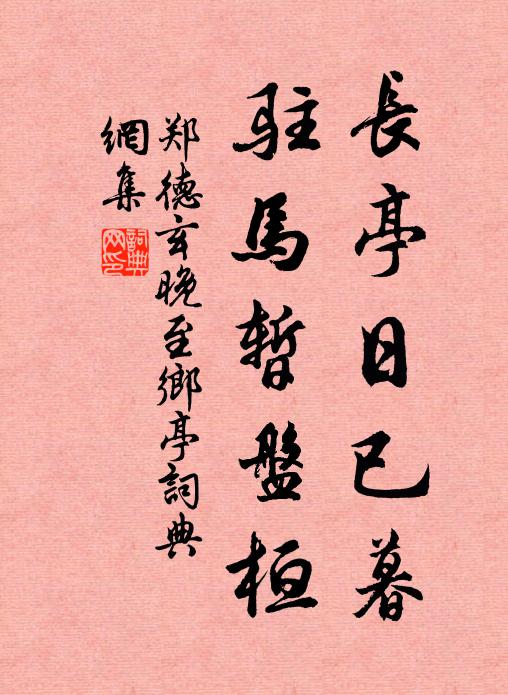 長亭日已暮
駐馬暫盤桓
郑德玄晚至鄉亭詞典
網集
詞典
网印